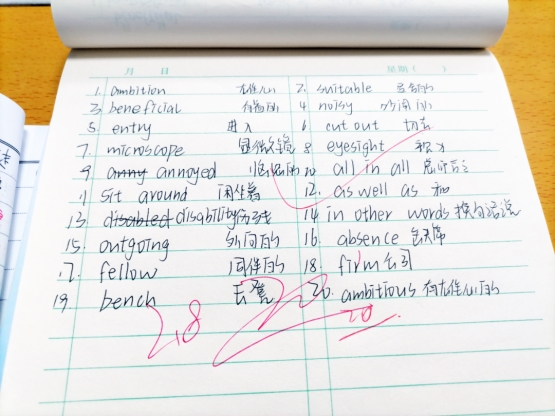 月 日 星期( )
1. ambition 雄心 2. suitable 合适的
3. beneficial 有益的 4. noisy 吵闹的
5. entry 进入 6. cut out 切去
7. microscope 显微镜 8. eyesight 视力
9. anny annoyed 恼怒的 10. all in all 总而言之
11. sit around 闲坐着 12. as well as 和
13. disabled disability 14. in other words 换句话说
15. outgoing 外向的 16. absence 缺席
17. fellow 同伴的 18. firm 公司
19. bench 长凳 20. ambitious 有雄心的